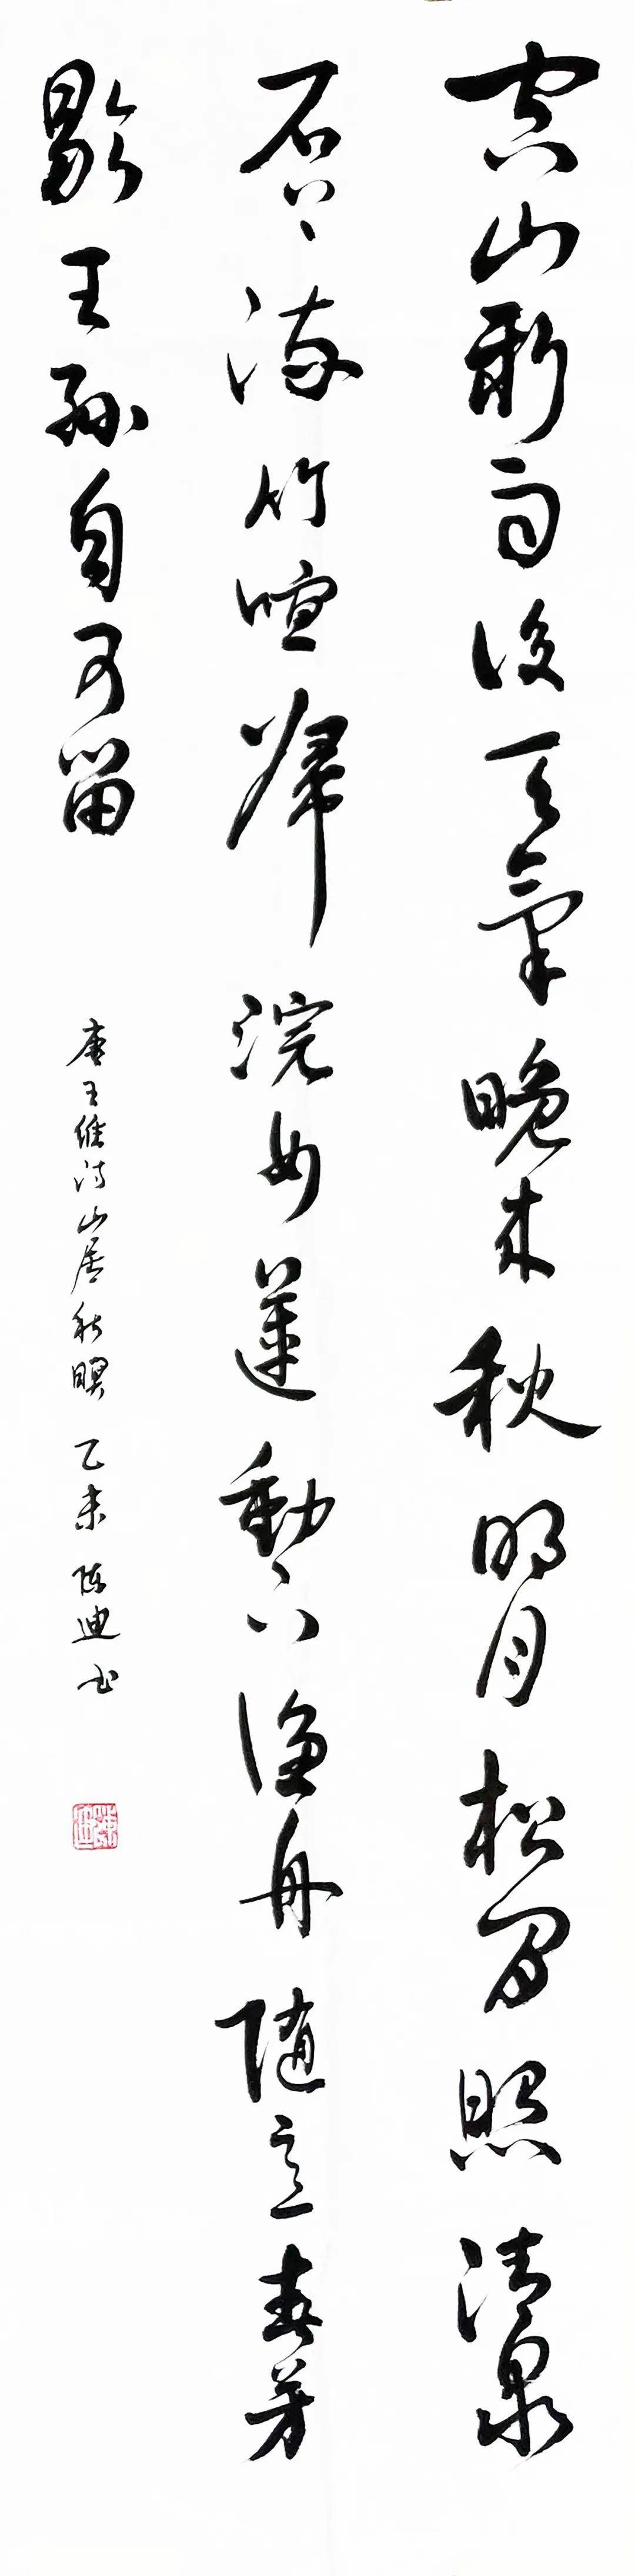 空山新雨後天氣晚来秋明月松間照清泉
石上流竹喧歸浣女蓮動下漁舟随意春芳
歇王孫自可留
唐王維詩山居秋暝 乙未 陈迪书
陳迪